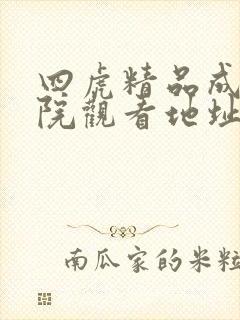 四虎精品成
院觀看地址
南瓜家的米粒